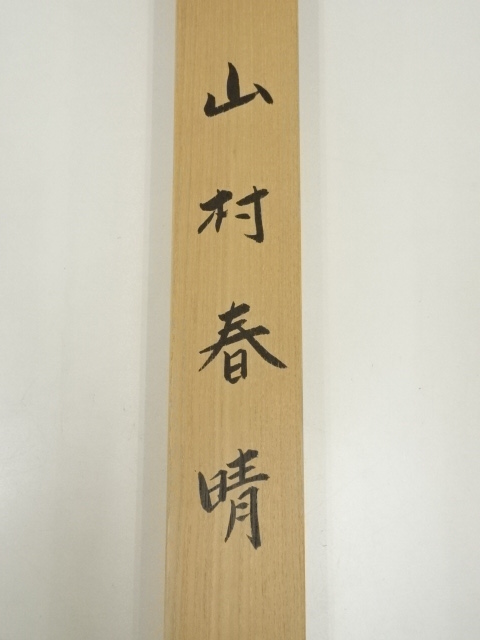 山村春晴